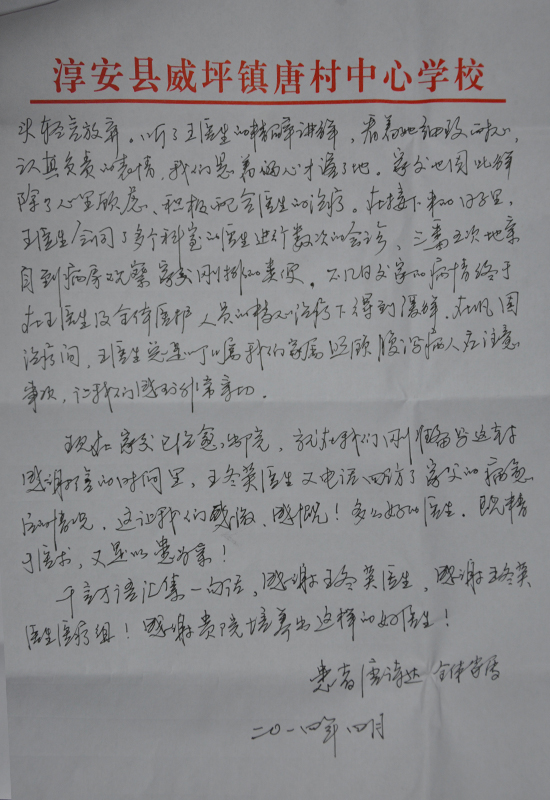 淳安县威坪镇唐村中心学校
头轻言放弃。听了王医生的精障讲解，看着她细致的心，
认真负责的表情，我们悬着的心才落了地。家父也因此解
除了心里顾虑、积极配合医生的治疗。在接下来的日子里，
王医生会同了多个科室的医生进行数次的会诊，三番五次地亲
自到病房观察家父刚排的粪便。不几日父家的病情终于
在王医生及全体医护人员的精心治疗下得到缓解，在
治疗间，王医生总是叮嘱我们家属照顾腹泻病人应注意
事项，让我们感到非常亲切。
现在家父已俭愈出院，就在我们刚准备写这封
感谢信的时间里，王冬英医生又电话回访了家父的病愈
后的情况，这让我们感激、感慨！多么好的医生。既精
于医术，又是以患为亲！
千言万语汇集一句话，感谢王冬英医生，感谢王冬英
医生医疗组！感谢贵院培养出这样的好医生！
患者唐诗达 全体家属
二〇一四年四月